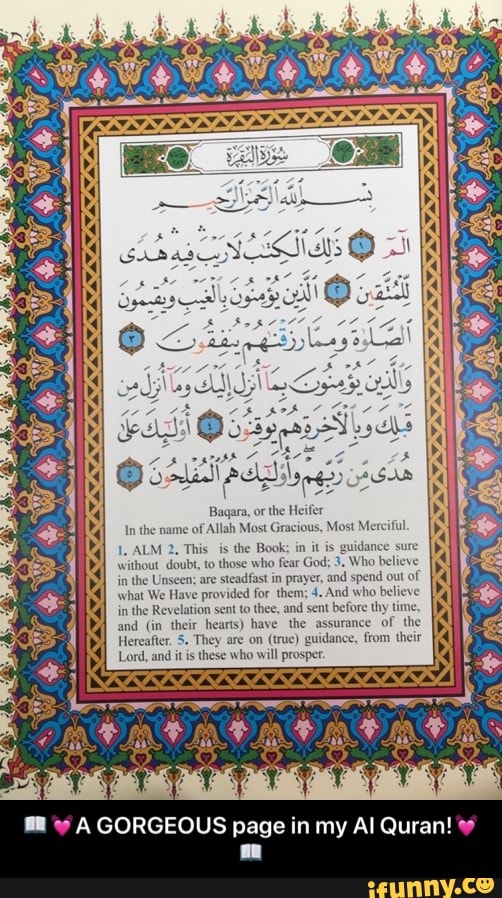 سُورَةُ الْبَقَرَةِ
بِسْمِ اللَّهِ الرَّحْمَٰنِ الرَّحِيمِ
الٓمٓ ١ ذَٰلِكَ الْكِتَٰبُ لَا رَيْبَ فِيهِ هُدًى
لِّلْمُتَّقِينَ ٢ الَّذِينَ يُؤْمِنُونَ بِالْغَيْبِ وَيُقِيمُونَ
الصَّلَوٰةَ وَمِمَّا رَزَقْنَٰهُمْ يُنفِقُونَ ٣
وَالَّذِينَ يُؤْمِنُونَ بِمَآ أُنزِلَ إِلَيْكَ وَمَآ أُنزِلَ مِن
قَبْلِكَ وَبِالْأَخِرَةِ هُمْ يُوقِنُونَ ٤ أُوْلَٰٓئِكَ عَلَىٰ
هُدًى مِّن رَّبِّهِمْ وَأُوْلَٰٓئِكَ هُمُ الْمُفْلِحُونَ ٥
Baqara, or the Heifer
In the name of Allah Most Gracious, Most Merciful.
1. ALM 2. This is the Book; in it is guidance sure
without doubt, to those who fear God; 3. Who believe
in the Unseen; are steadfast in prayer, and spend out of
what We Have provided for them; 4. And who believe
in the Revelation sent to thee, and sent before thy time,
and (in their hearts) have the assurance of the
Hereafter. 5. They are on (true) guidance, from their
Lord, and it is these who will prosper.
📖💓A GORGEOUS page in my Al Quran!💓
📖
ifunny.co